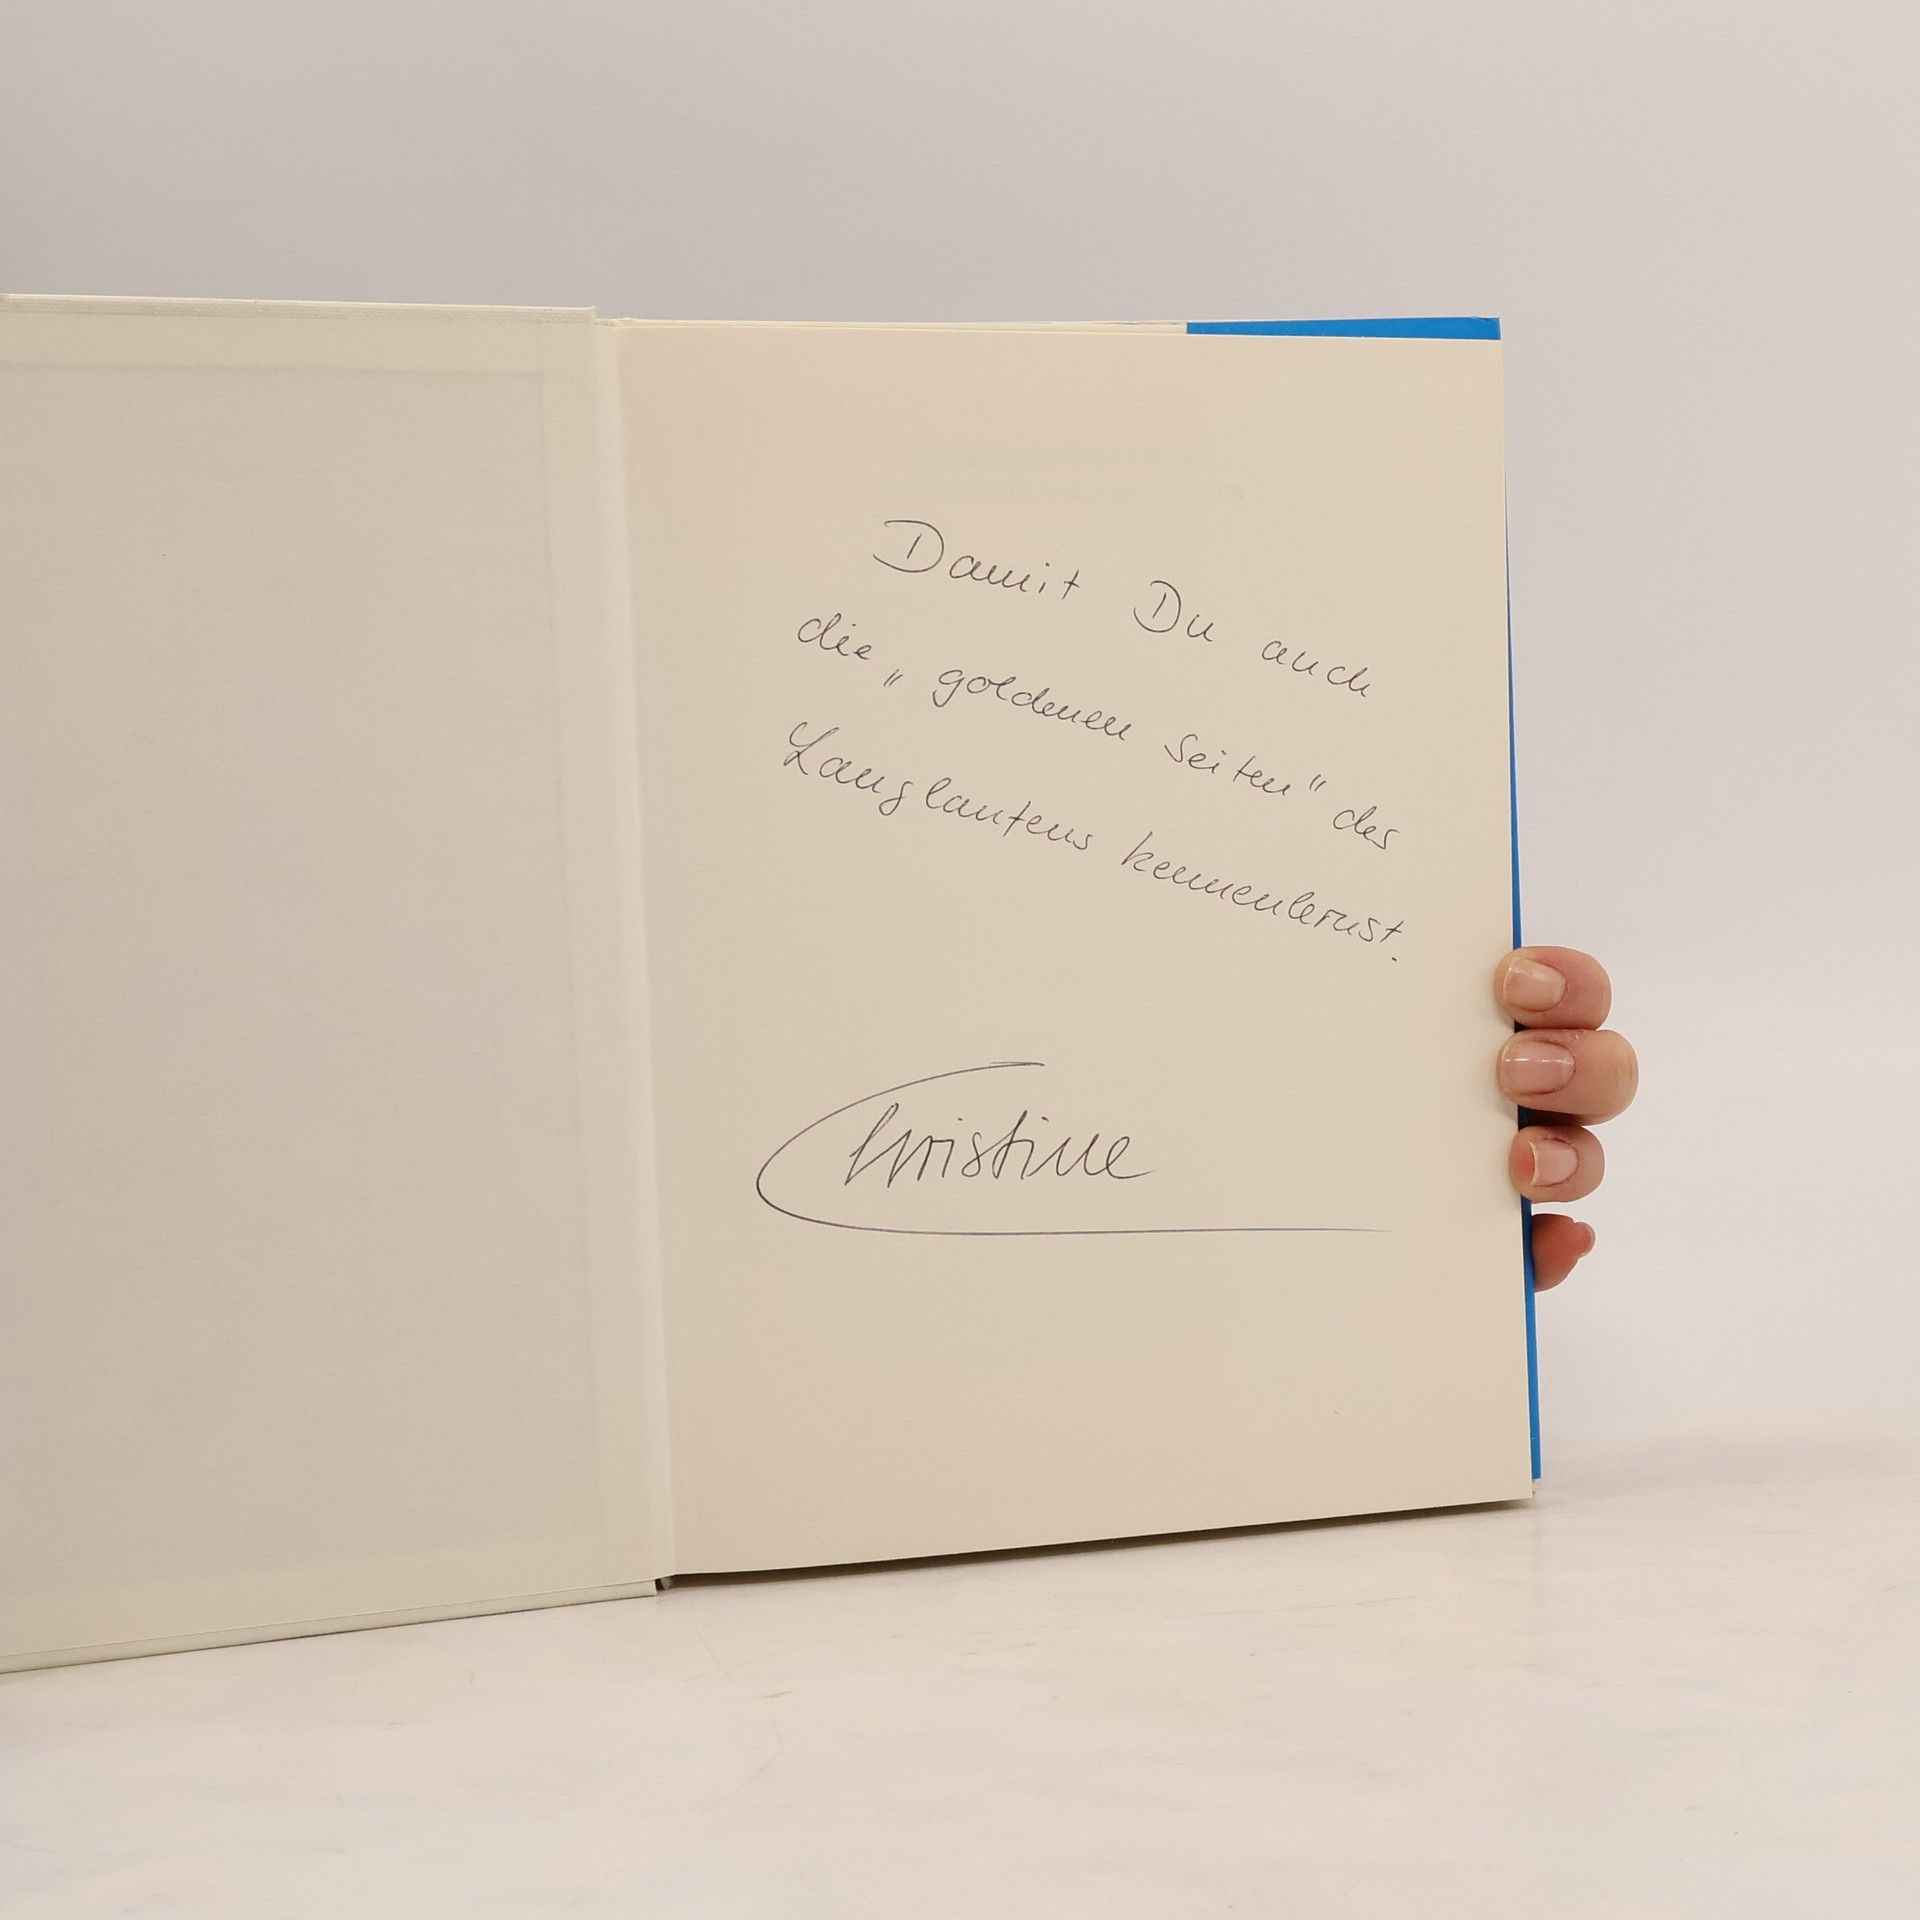 Damit Du auch
die „goldenen Seiten" des
Langlaufens kennenlernst.
Christine